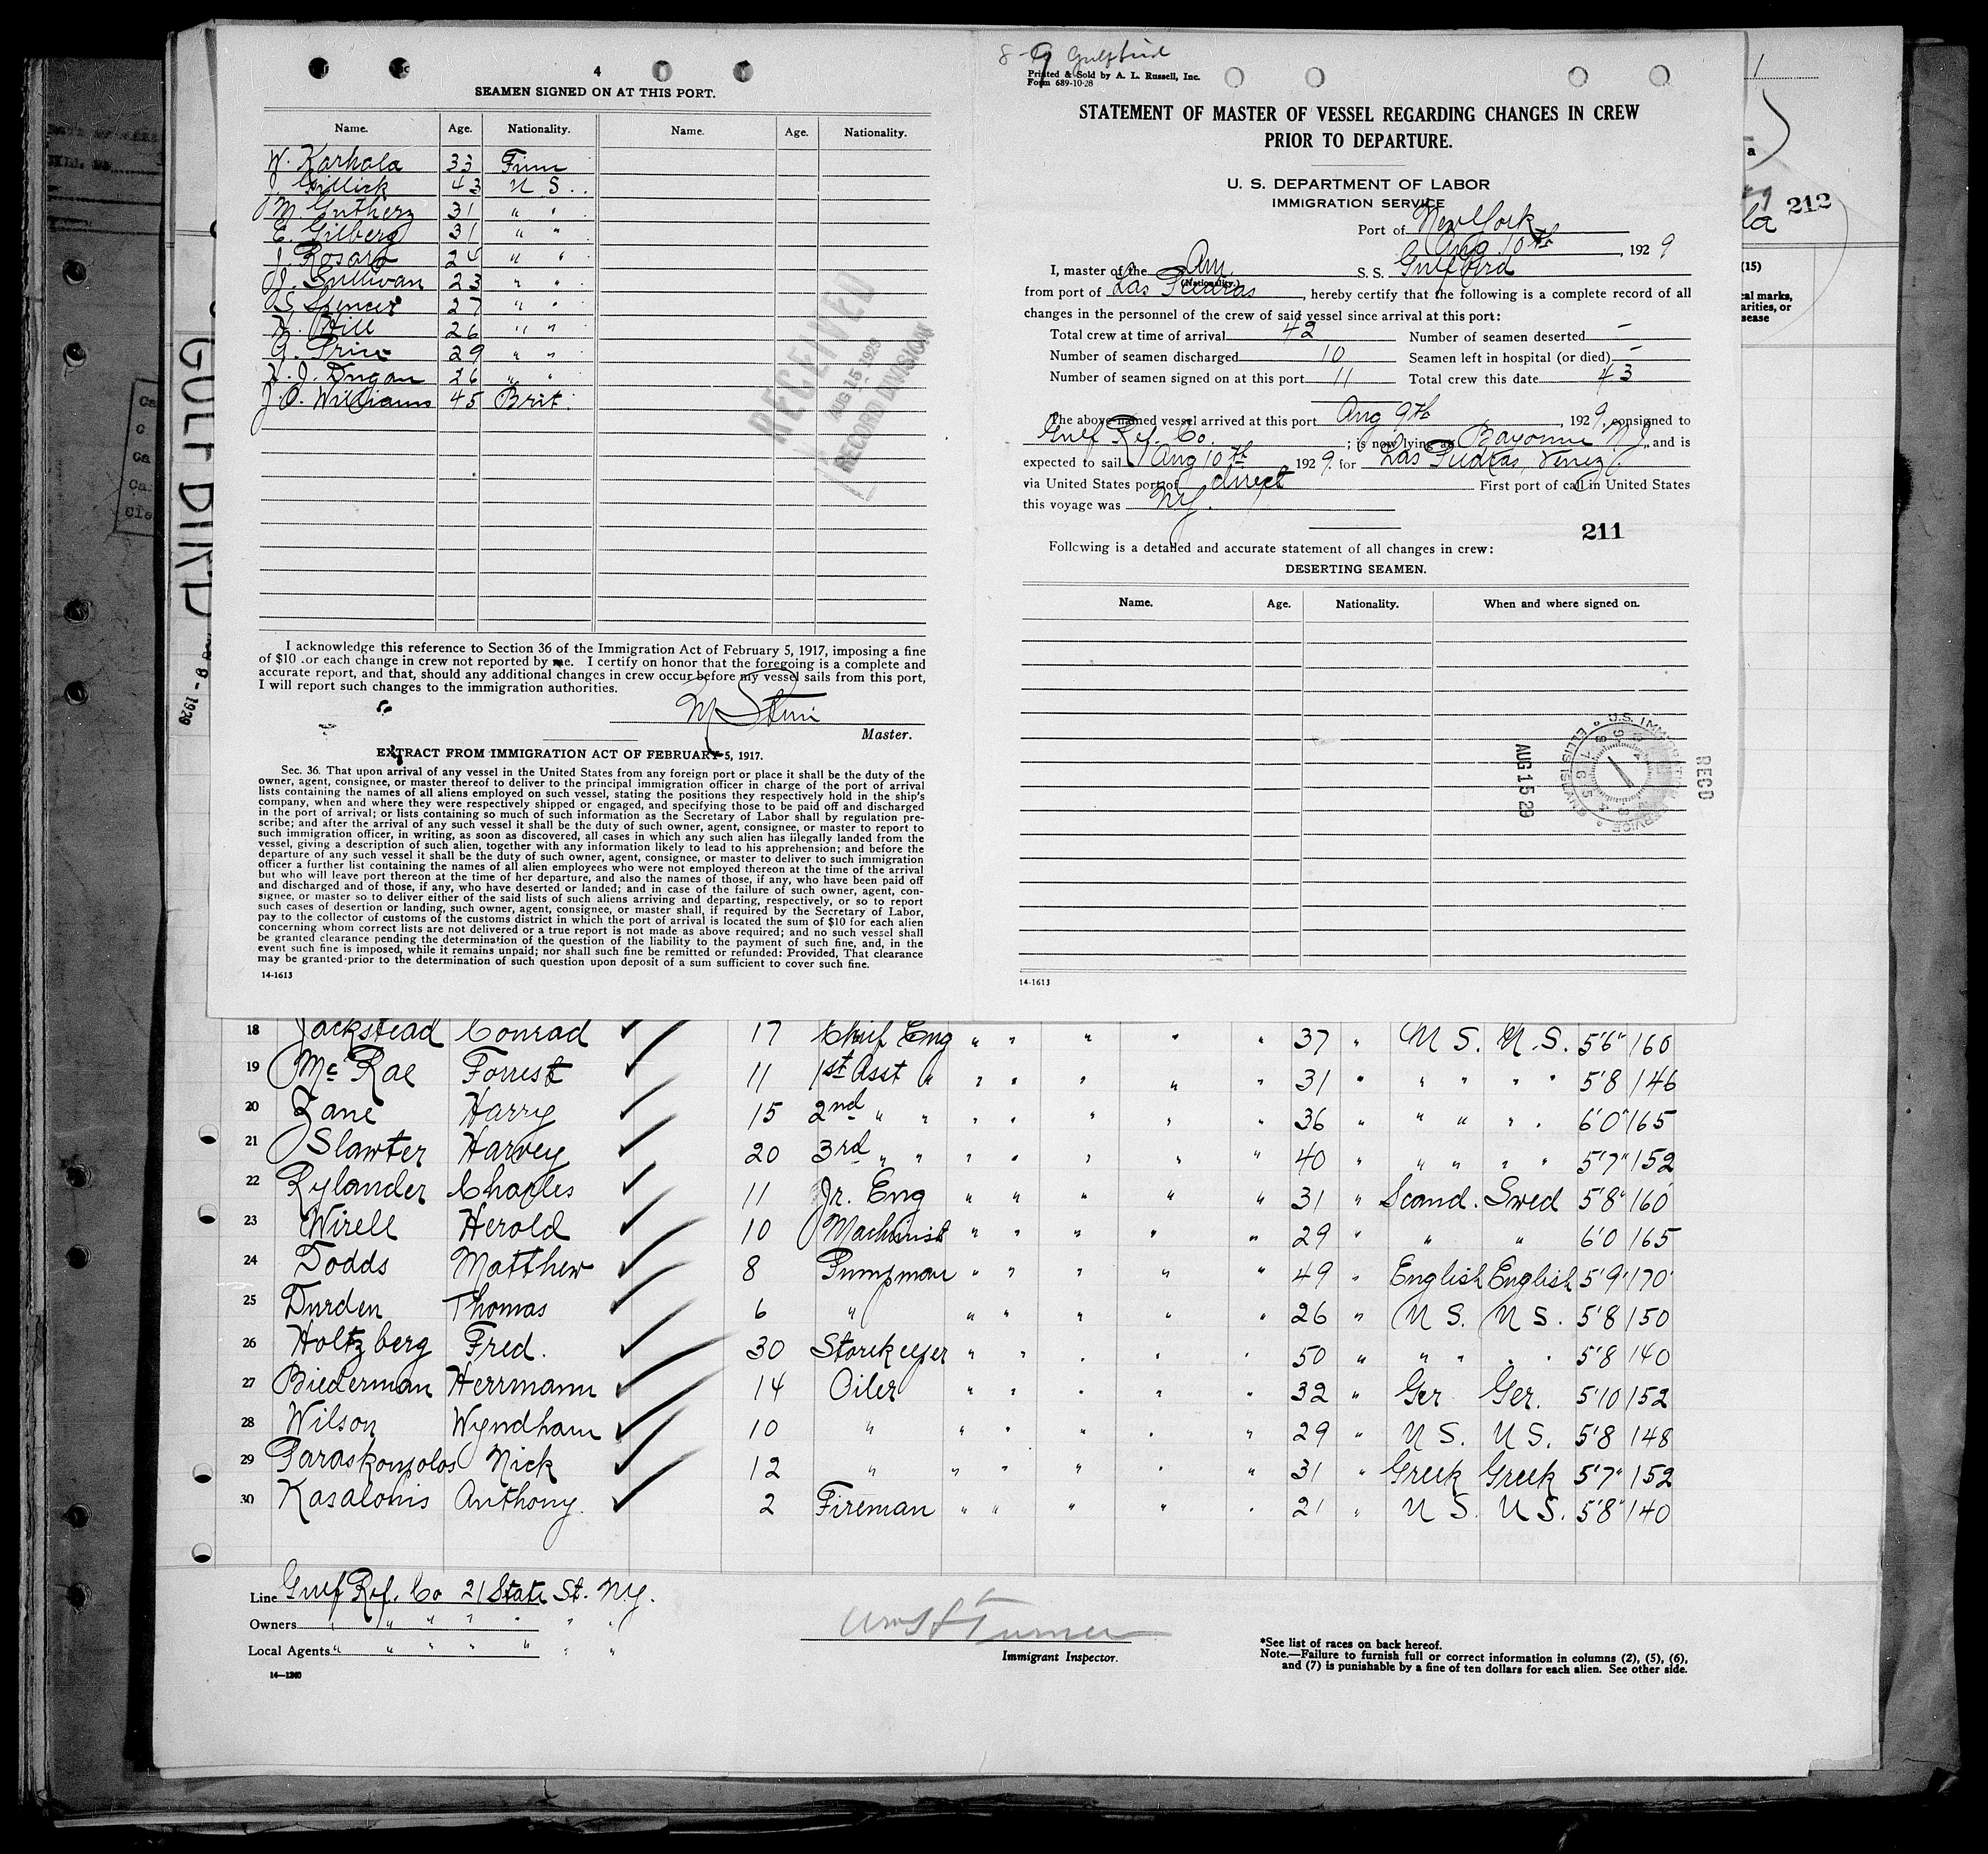 4
SEAMEN SIGNED ON AT THIS PORT.
Name. Age. Nationality. Name. Age. Nationality.
W. Karhola 33 Finn
J. Gillick 43 U S.
M. Gutherz 31 " "
E. Gilberg 31 " "
J. Rosaro 24 " "
J. Sullivan 23 " "
S. Spencer 27 " "
Hill 26 " "
G. Prine 29 " "
H. J. Dugan 26 " "
J. O. Williams 45 Brit.
RECEIVED
AUG 15 1929
RECORD DIVISION
I acknowledge this reference to Section 36 of the Immigration Act of February 5, 1917, imposing a fine
of $10 for each change in crew not reported by me. I certify on honor that the foregoing is a complete and
accurate report, and that, should any additional changes in crew occur before my vessel sails from this port,
I will report such changes to the immigration authorities.
Master.
EXTRACT FROM IMMIGRATION ACT OF FEBRUARY 5, 1917.
Sec. 36. That upon arrival of any vessel in the United States from any foreign port or place it shall be the duty of the
owner, agent, consignee, or master thereof to deliver to the principal immigration officer in charge of the port of arrival
lists containing the names of all aliens employed on such vessel, stating the positions they respectively hold in the ship's
company, when and where they were respectively shipped or engaged, and specifying those to be paid off and discharged
in the port of arrival; or lists containing so much of such information as the Secretary of Labor shall by regulation pre-
scribe; and after the arrival of any such vessel it shall be the duty of such owner, agent, consignee, or master to report to
such immigration officer, in writing, as soon as discovered, all cases in which any such alien has illegally landed from the
vessel, giving a description of such alien, together with any information likely to lead to his apprehension; and before the
departure of any such vessel it shall be the duty of such owner, agent, consignee, or master to deliver to such immigration
officer a further list containing the names of all alien employees who were not employed thereon at the time of the arrival
but who will leave port thereon at the time of her departure, and also the names of those, if any, who have been paid off
and discharged and of those, if any, who have deserted or landed; and in case of the failure of such owner, agent, con-
signee, or master so to deliver either of the said lists of such aliens arriving and departing, respectively, or so to report
such cases of desertion or landing, such owner, agent, consignee, or master shall, if required by the Secretary of Labor,
pay to the collector of customs of the customs district in which the port of arrival is located the sum of $10 for each alien
concerning whom correct lists are not delivered or a true report is not made as above required; and no such vessel shall
be granted clearance pending the determination of the question of the liability to the payment of such fine, and, in the
event such fine is imposed, while it remains unpaid; nor shall such fine be remitted or refunded: Provided, That clearance
may be granted prior to the determination of such question upon deposit of a sum sufficient to cover such fine.
14-1613
8-9 Gulfbird
Printed & Sold by A. L. Russell, Inc.
Form 689-10-28
STATEMENT OF MASTER OF VESSEL REGARDING CHANGES IN CREW
PRIOR TO DEPARTURE.
U. S. DEPARTMENT OF LABOR
IMMIGRATION SERVICE
Port of New York
Aug 10th, 1929
I, master of the Am. (Nationality.) S. S. Gulfbird
from port of Las Piedras, hereby certify that the following is a complete record of all
changes in the personnel of the crew of said vessel since arrival at this port:
Total crew at time of arrival 42 Number of seamen deserted -
Number of seamen discharged 10 Seamen left in hospital (or died) -
Number of seamen signed on at this port 11 Total crew this date 43
The above named vessel arrived at this port Aug 9th, 1929, consigned to
Gulf Ref. Co.; is now lying at Bayonne N J. and is
expected to sail Aug 10th 1929. for Las Piedras, Venez.
via United States port of direct First port of call in United States
this voyage was NY.
211
Following is a detailed and accurate statement of all changes in crew:
DESERTING SEAMEN.
Name. Age. Nationality. When and where signed on.
AUG 15 29
U.S. IMMIGRATION SERVICE ELLIS ISLAND
RECD
14-1613
212
(15)
GULF BIRD
18 Jackstead Conrad ✓ 17 Chief Eng " " " " " 37 " U S. U.S. 5'6" 160
19 McRae Forrest ✓ 11 1st Asst " " " " " " 31 " " " " " 5'8 146
20 Zane Harry ✓ 15 2nd " " " " " " 36 " " " " " 6'0" 165
21 Slawter Harvey ✓ 20 3rd " " " " " " " 40 " " " " " 5'7" 152
22 Rylander Charles ✓ 11 Jr. Eng " " " " " 31 " Scand. Swed 5'8" 160
23 Wirell Herold ✓ 10 Machinist " " " " " 29 " " " 6'0 165
24 Dodds Matthew ✓ 8 Pumpman " " " " " 49 " English English 5'9" 170
25 Durden Thomas ✓ 6 " " " " " 26 " U S. U S. 5'8 150
26 Holtzberg Fred. ✓ 30 Storekeeper " " " " " 50 " " " " " 5'8 140
27 Biederman Herrmann ✓ 14 Oiler " " " " " 32 " Ger Ger. 5'10 152
28 Wilson Wyndham ✓ 10 " " " " " " 29 " U S. U S. 5'8 148
29 Paraskompolos Nick ✓ 12 " " " " " " 31 " Greek Greek 5'7" 152
30 Kasalonis Anthony. ✓ 2 Fireman " " " " " 21 " U S. U S. 5'8" 140
Line Gulf Ref. Co 21 State St. N.Y.
Owners " " " " " " "
Local Agents " " " " " " "
14-1240
Turner
Immigrant Inspector.
*See list of races on back hereof.
Note.—Failure to furnish full or correct information in columns (2), (5), (6),
and (7) is punishable by a fine of ten dollars for each alien. See other side.